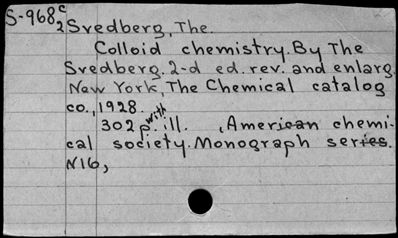 S-968 c2 Svedberg, The.
Colloid chemistry. By The
Svedberg. 2-d ed. rev. and enlarg.
New York, The Chemical catalog
co., 1928.
302 p. with ill. , American chemi-
cal society. Monograph series.
N16,